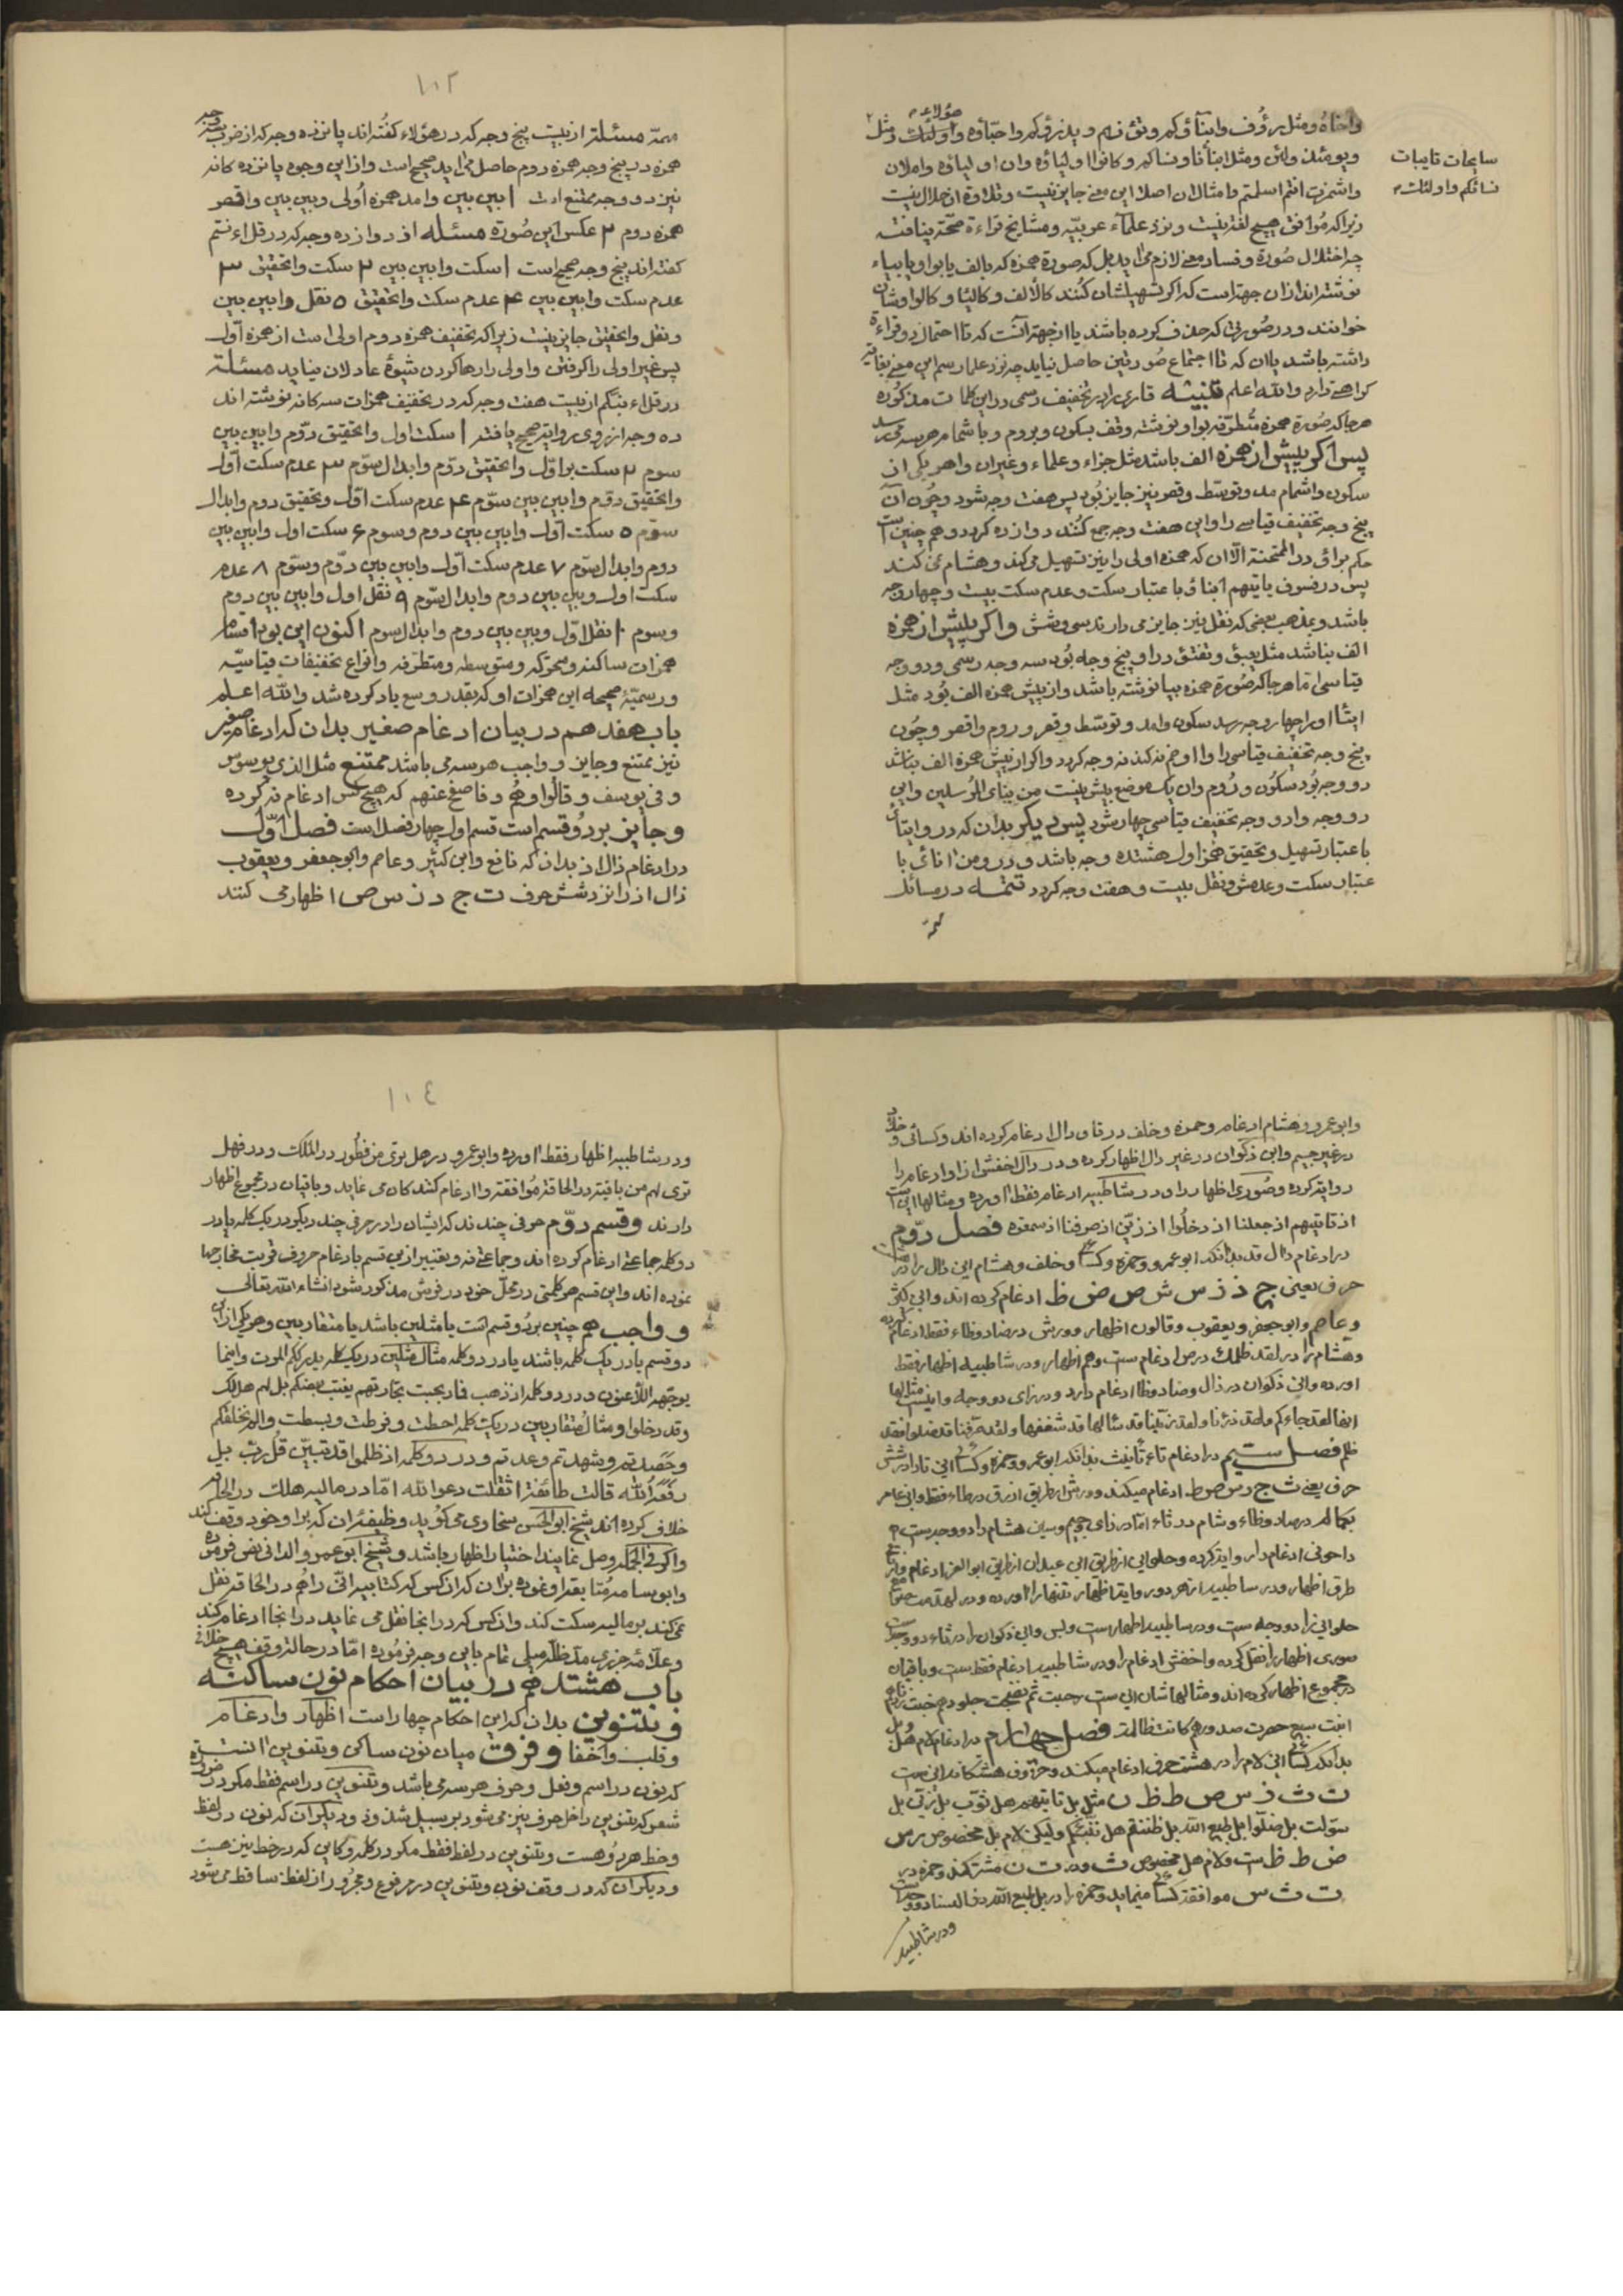 واخاهُ ومثل برؤف وابنآؤكم وتؤزهم ويذرؤكم واحبّاؤه واولئك ومثل
هؤلاء
ويومئذ ولئن ومثل ابنأنا ونساكم وكانوا اولياؤه وان اولياؤه واملان
سابحات تايبات
نسائكم واولئك
واشمزت انتم اسلمتم وامثال ان اصلا اين معنى جايز نيست وتلاوة ان حلال نيست
زيرا كه موافق هيچ لغة نيست ونزد علمآء عربيّه ومشايخ قراءة صحّة نيافته
چه اختلال صورة وفساد معنى لازم مى ايد بل كه صورة همزه كه بالف يا بواو يا بياء
نوشته اند ازان جهة است كه اكر تسهيلشان كنند كالالف وكاليا وكالواوشان
خوانند ودر صورتى كه حذف كرده باشند يا از جهة انست كه تا احتمال دو قراءة
داشته باشد يا ان كه تا اجتماع صورتين حاصل نيايد چه نزد علماء رسم اين معنى بغاية
كراهة دارد والله اعلم تنبيه قارى را در تخفيف رسمى در اين كلمات مذكوره
هرجا كه صورة همزه متطرّفه بواو نوشته وقف بسكون وبروم وباشمام هرسه مى رسد
پس اكر پيش از همزه الف باشد مثل جزاء وعلماء وغيران واهر يكى از
سكون واشمام مد وتوسّط وقصر نيز جايز بود پس هفت وجه شود وچون آن
پنج وجه تخفيف قياسى را وااين هفت وجه جمع كنند دوازده كردد وهم چنين است
حكم برآؤ در الممتحنة الّا ان كه همزه اولى را نيز تسهيل مى كند وهشام نمى كند
پس در فسوف ياتيهم انبؤا باعتبار سكت وعدم سكت بيست وچهار وجه
باشد وبمذهب بعضى كه نقل نيز جايز مى دارند سى وشش واكر پيش از همزه
الف نباشد مثل يعبؤ وتفتؤ در او پنج وجه بود سه وجه رسمى ودو وجه
قياسى اما هرجا كه صورة همزه بيا نوشته باشد واز پيش همزه الف بود مثل
ايتاى او را چهار وجه رسد سكون وامد وتوسّط وقصر وروم واقصر وچون
پنج وجه تخفيف قياسى را وااو ضم كنند نه وجه كردد واكر از پيش همزه الف نباشد
دو وجه بود سكون وروم وان يك موضع بيش نيست من نبإى المرسلين واين
دو وجه وادو وجه تخفيف قياسى چهار شود پس ديكر بدان كه در وايتاى
باعتبار تسهيل وتحقيق همزه اول هشتده وجه باشد ودر ومن اناى با
عتبار سكت وعدمش ونقل بيست وهفت وجه كردد تتمّه در مسائل
مهمّه
١٠٢
مهمّه مسئلة از بيست پنج وجه كه در هؤلاء كفته اند پانزده وجه كه از ضرب سه وجه
همزه در پنج وجه همزه دوم حاصل مى ايد صحيح است واز اين وجوه پانزده كانه
نيز دو وجه ممتنع است ١ بين بين وامد همزه اولى وبين بين واقصر
همزه دوم ٢ عكس اين صورة مسئله از دوازده وجه كه در قل اءنتم
كفته اند پنج وجه صحيح است ١ سكت وابين بين ٢ سكت واتحقيق ٣
عدم سكت وابين بين ٤ عدم سكت واتحقيق ٥ نقل وابين بين
ونقل واتحقيق جايز نيست زيرا كه تخفيف همزه دوم اولى است از همزه اول
پس غير اولى را كرفتن واولى را رها كردن شيوهٔ عادلان نيايد مسئلة
در قل اءنبئكم از بيست هفت وجه كه در تخفيف همزات سه كانه نوشته اند
ده وجه از روى رواية صحيح يافته ١ سكت اول واتحقيق دوّم وابين بين
سوم ٢ سكت بر اوّل واتحقيق دوّم وابدال سوّم ٣ عدم سكت اوّل
واتحقيق دوّم وابين بين سوّم ٤ عدم سكت اوّل وتحقيق دوم وابدال
سوّم ٥ سكت اوّل وابين بين دوم وسوم ٦ سكت اول وابين بين
دوم وابدال سوّم ٧ عدم سكت اوّل وابين بين دوّم وسوّم ٨ عدم
سكت اول وبين بين دوم وابدال سوّم ٩ نقل اول وابين بين دوم
وسوم ١٠ نقل اوّل وبين بين دوم وابدال سوم اكنون اين بود اقسام
همزات ساكنه ومحركه ومتوسطه ومتطرّفه وانواع تخفيفات قياسيّه
ورسميّهٔ صحيحه اين همزات او كه بقدر وسع ياد كرده شد والله اعلم
باب هفدهم در بيان ادغام صغير بدان كه ادغام صغير
نيز ممتنع وجايز وواجب هرسه مى باشد ممتنع مثل الذى يوسوس
وفى يوسف وقالوا وهُم وفاصفح عنهم كه هيچ كس ادغام نه كرده
وجايز بر دو قسم است قسم اول چهار فصل است فصل اوّل
در ادغام ذال اذ بدان كه نافع وابن كثير وعاصم وابو جعفر ويعقوب
ذال اذ را نزد شش حرف ت ج د ز س ص اظهار مى كنند
وابو عمرو وهشام ادغام وحمزه وخلف در تا ودال ادغام كرده اند وكسائى وخلاد
در غير جيم وابن ذكوان در غير دال اظهار كرده ودر دال اخفش از او ادغام را
رواية كرده وصورى اظهار را ودر شاطبيه ادغام فقط اورده ومثالها اين است
اذ تاتيهم اذ جعلنا اذ دخلوا اذ زيّن اذ صرفنا اذ سمعتموه فصل دوّم
در ادغام دال قد بدانكه ابو عمرو وحمزه وكسائى وخلف وهشام اين دال را در هشت
حرف يعنى ج ذ ز س ش ص ض ظ ادغام كرده اند وابن كثير
وعاصم وابو جعفر ويعقوب وقالون اظهار وورش در ضاد وظاء فقط ادغام كرده
وهشام را در لقد ظلمك در ص ادغام ست وهم اظهار ودر شاطبيه اظهار فقط
اورده وابن ذكوان در ذال وضاد وظا ادغام دارد ودر زاى دو وجه واينست مثالها
ايضا لقد جاءكم ولقد ذرانا ولقد زيّنا قد سالها قد شغفها ولقد صرّفنا قد ضلوا فقد
ظلم فصل سيم در ادغام تاء تأنيث بدانكه ابو عمرو وحمزه وكسائى اين تا را در شش
حرف يعنى ث ج ز س ص ظ ادغام ميكند وورش از طريق ازرق در ظاء فقط وابن عامر
بكماله در صاد وظاء وشام در ثاء امّا در زاى وجيم وسين هشام را دو وجه ست
داجونى ادغام را رواية كرده وحلوانى از طريق ابن عبدان از طريق ابو العز ادغام وباقى
طرق اظهار ودر شاطبيه از هر دو رواية اظهار تنها را اورده ودر لهدمت صوامع
حلوانى را دو وجه ست ودر شاطبيه اظهار ست وبس وابن ذكوان را در ثاء دو وجه ست
صورى اظهار را نقل كرده واخفش ادغام را ودر شاطبيه ادغام فقط ست وباقيان
در مجموع اظهار كرده اند ومثالهاشان اين ست رحبت ثم نضجت جلودهم خبت زدناهم
انبتت سبع حصرت صدورهم كانت ظالمة فصل چهارم در ادغام لام هل وبل
بدانكه كسائى اين لام را در هشت حرف ادغام ميكند وحروف هشتكانه اين ست
ت ث ز س ض ط ظ ن مثل بل تاتيهم هل ثوّب بل زيّن بل
سوّلت بل ضلّوا بل طبع الله بل ظننتم هل ننبئكم وليكن لام بل مخصوص بز س
ض ط ظ ست ولام هل مخصوص ث ودر ت ن مشتركند وحمزه در
ت ث س موافقة كسائى مينمايد وحمزه را در بل طبع الله در النساء دو وجه ست
ودر شاطبيه
١٠٤
ودر شاطبيه اظهار فقط اورده وابو عمرو در هل ترى من فطور در الملك ودر فهل
ترى لهم من باقية در الحاقة موافقة وا ادغام كنندكان مى نمايد وباقيان در مجموع اظهار
دارند وقسم دوّم حرفى چندند كه ايشان را در حرفى چند ديكر در يك كلمه يا در
دو كلمه جماعتى ادغام كرده اند وجماعتى نه وتعبير ازين قسم بادغام حروف قربت مخارجها
نموده اند واين قسم هر كلمتى در محلّ خود در فرش مذكور شود انشاء الله تعالى
وواجب هم چنين بر دو قسم است يا مثلين باشد يا متقاربين وهر يكى ازين
دو قسم يا در يك كلمه باشند يا در دو كلمه مثال مثلين در يك كلمه يدرككم الموت واينما
يوجهه اللاعنون ودر دو كلمه اذ ذهب فاربحت تجارتهم يغتب بعضكم بل لهم هلك
وقد دخلوا ومثال متقاربين در يك كلمه احطت وفرطت وبسطت والم نخلقكم
وحصدتم وشهدتم وعدتم ودر دو كلمه اذ ظلموا قد تبيّن قل ربّ بل
رفعه الله قالت طائفة اثقلت دعوا الله امّا در ماليه هلك در الحاقة
خلاف كرده اند شيخ ابو الحسن سخاوى مى كويد وظيفهٔ ان كه بر او خود وقف كند
واكر فى الحكم وصل نمايند اختيار اظهار باشد وشيخ ابو عمرو الدانى نص فرموده
وابو شامه متابع او نموده بر ان كه ان كس كه كتابيه انّى را هم در الحاقة نقل
نمى كند بر ماليه سكت كند وان كس كه در انجا نقل مى نمايد در انجا ادغام كند
وعلّامه جزرى مدّ ظلّه ميلى تمام باين وجه فرموده امّا در حالة وقف هيچ خلاف
باب هشتدهم در بيان احكام نون ساكنه
وتنوين بدان كه اين احكام چهار است اظهار وادغام
وقلب واخفا وفرق ميان نون ساكن وتنوين انست
كه نون در اسم وفعل وحرف هرسه مى باشد وتنوين در اسم فقط مكر در ضرورة
شعر كه تنوين داخل حرف نيز مى شود بر سبيل شذوذ وديكر ان كه نون در لفظ
وخط هر دو هست وتنوين در لفظ فقط مكر در كلمه وكاين كه در خط نيز هست
وديكر ان كه در وقف نون وتنوين در مرفوع ومجرور از لفظ ساقط مى شود